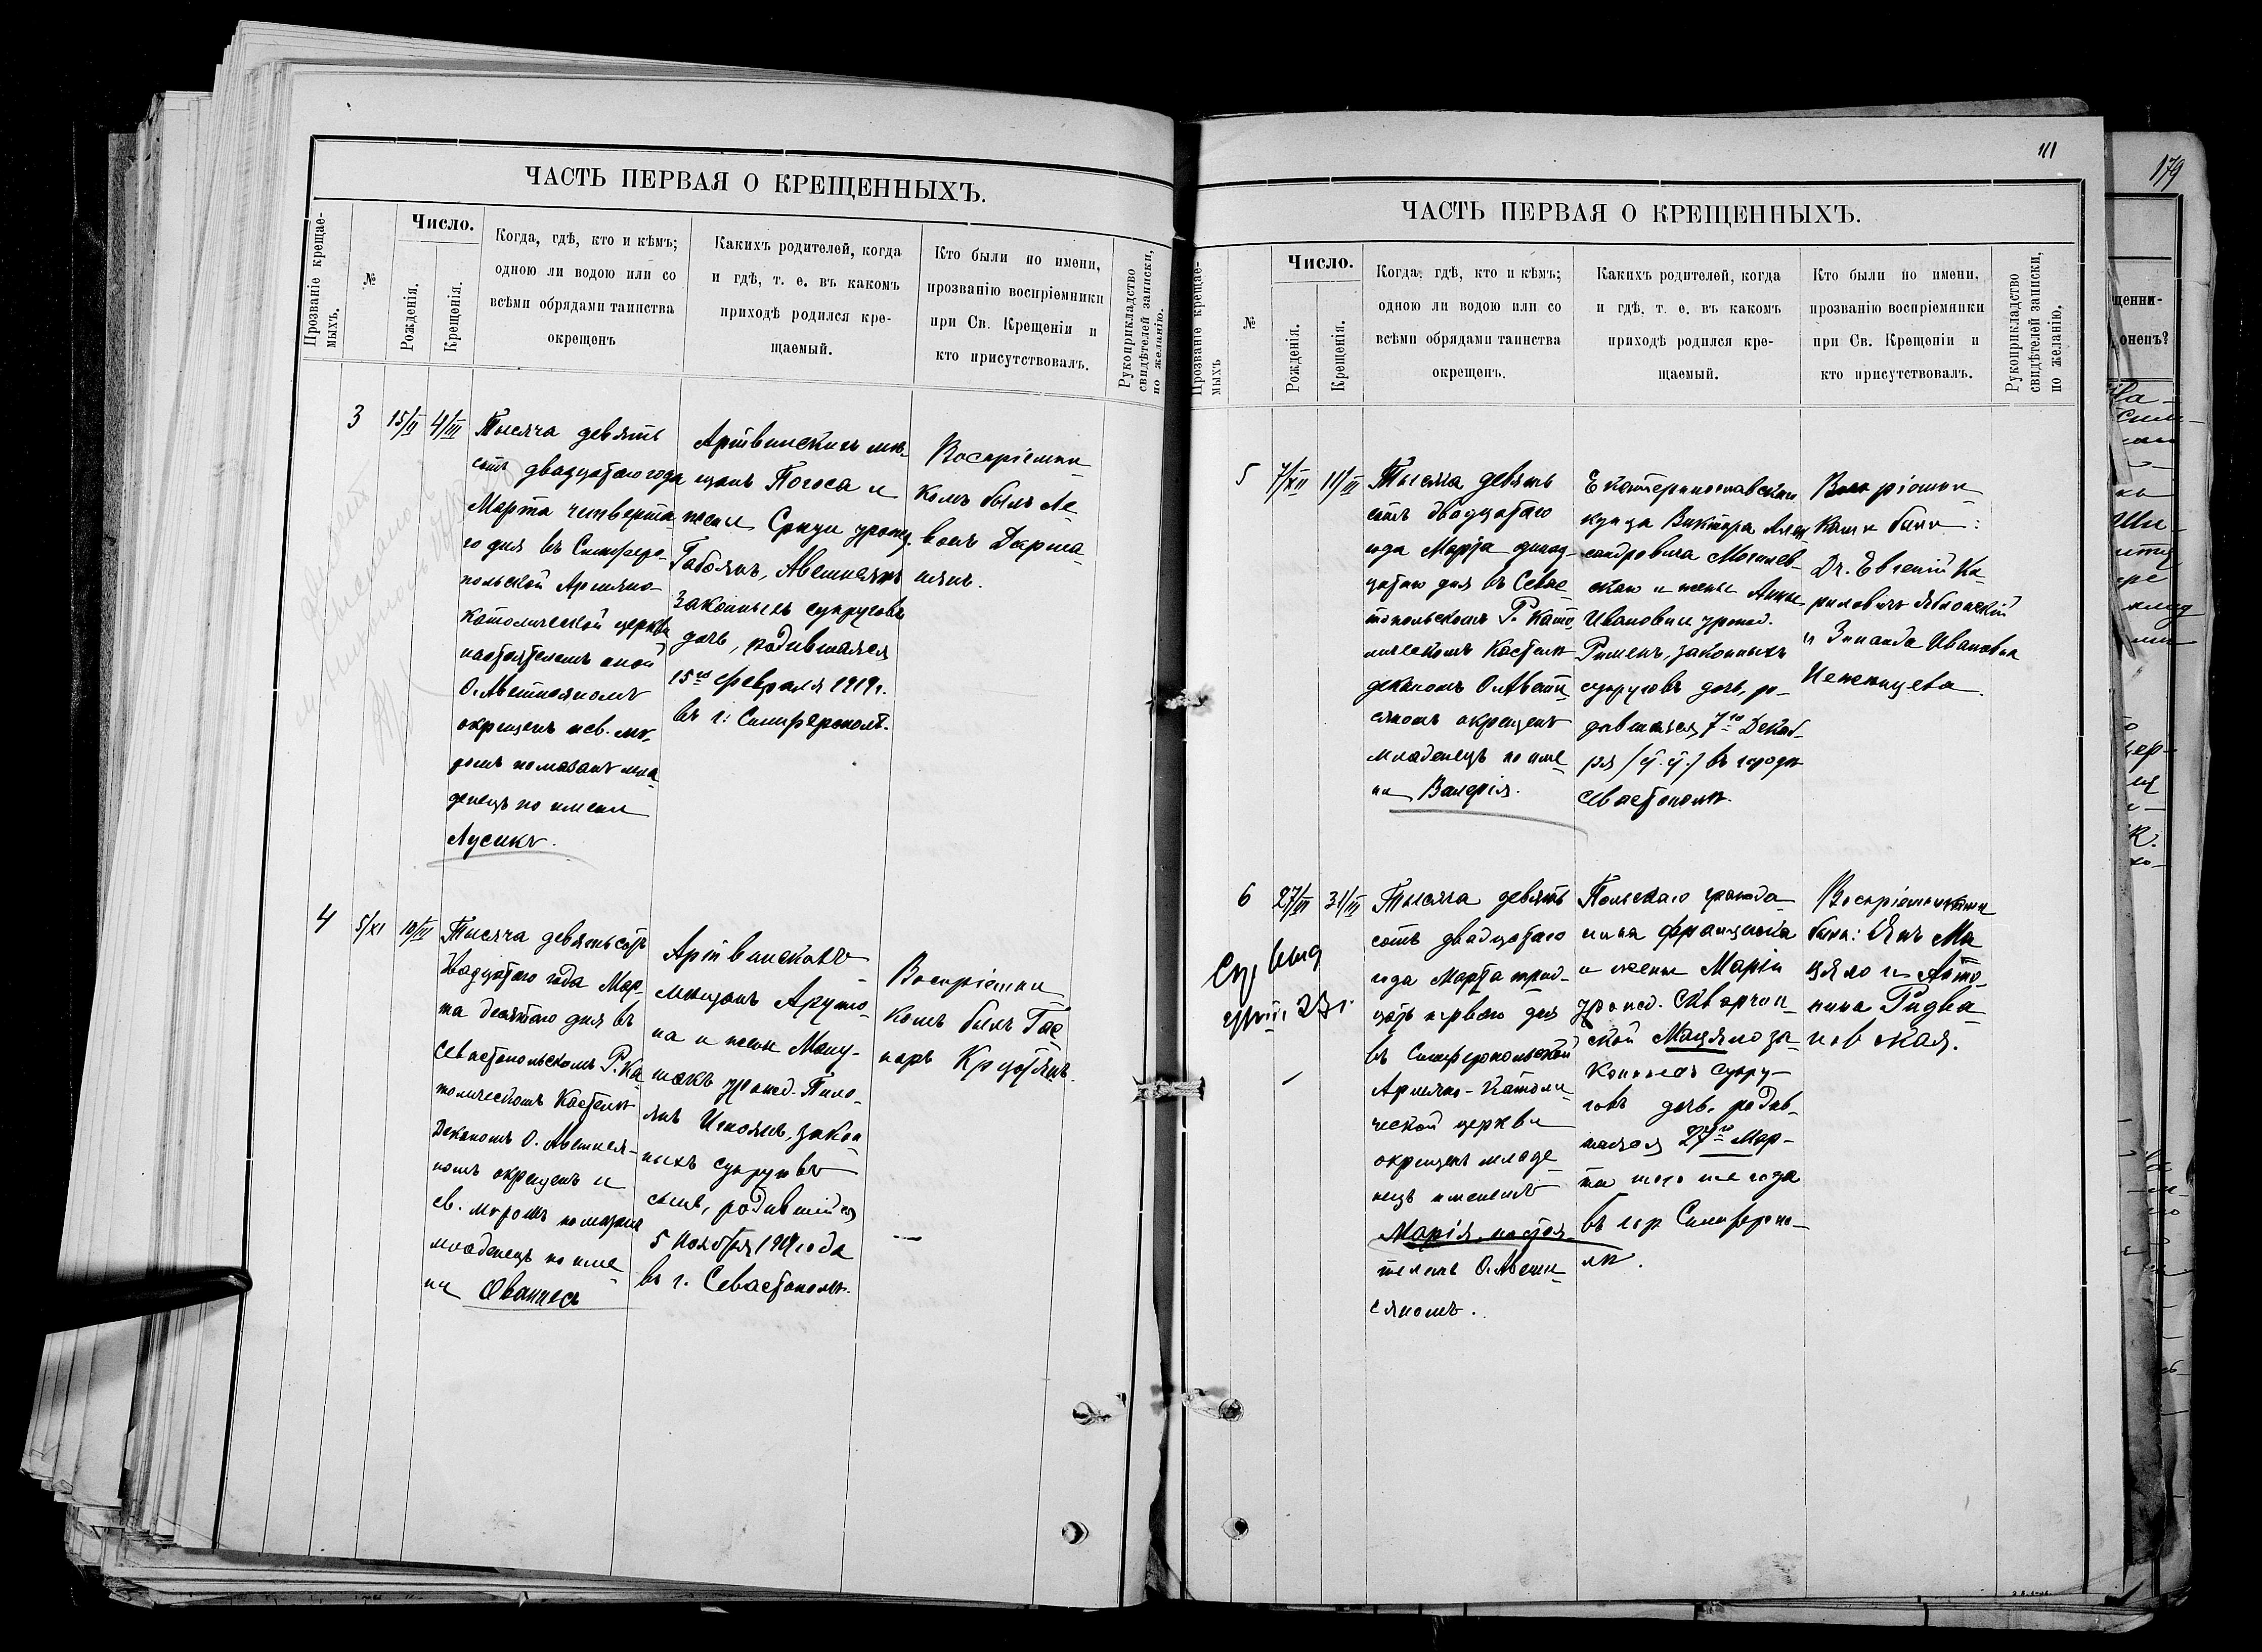 ЧАСТЬ ПЕРВАЯ О КРЕЩЕННЫХЪ.
Прозваніе крещае-
мыхъ.
№
Число.
Рожденія.
Крещенія.
Когда, гдѣ, кто и кѣмъ;
одною ли водою или со
всѣми обрядами таинства
окрещенъ
Какихъ родителей, когда
и гдѣ, т. е. въ какомъ
приходѣ родился кре-
щаемый.
Кто были по имени,
прозванію воспріемники
при Св. Крещеніи и
кто присутствовалъ.
Рукоприкладство
свидѣтелей записки,
по желанію.
3
15/II
4/III
Тысяча девять
сотъ двадцатаго года
Марта четверта
го дня въ Симферо-
польской Армяно-
католической церкви
настоятелемъ оной
О. Аветисяномъ
окрещенъ и св. мѵ-
ромъ помазанъ мла
денецъ по имени
Лусикъ.
Артвинскихъ мѣ-
щанъ Погоса и
жены Српуи урожд.
Габоянъ, Аветисянъ
законныхъ супруговъ
дочь, родившаяся
15го февраля 1919г.
въ г: Симферополѣ.
Воспріемни
комъ былъ Ле
вонъ Дарма
нянъ.
4
5/XI
10/III
Тысяча девятьсотъ
двадцатаго года Мар-
та десятаго дня въ
Севастопольскомъ Р. Ка
толическомъ Костелѣ
Деканомъ О. Аветися-
номъ окрещенъ и
св. мѵромъ помазанъ
младенецъ по име
ни Ованнесъ
Артвинскихъ
мѣщанъ Арутю-
на и жены Ману-
шакъ урожд. Пило-
янъ, закон
ныхъ супруговъ
сынъ, родившійся
5 Ноября 1919 года
въ г. Севастополѣ.
Воспріемни
комъ былъ Гас
паръ
111
ЧАСТЬ ПЕРВАЯ О КРЕЩЕННЫХЪ.
Прозваніе крещае-
мыхъ
№
Число.
Рожденія.
Крещенія.
Когда, гдѣ, кто и кѣмъ;
одною ли водою или со
всѣми обрядами таинства
окрещенъ.
Какихъ родителей, когда
и гдѣ, т. е. въ какомъ
приходѣ родился кре-
щаемый.
Кто были по имени,
прозванію воспріемники
при Св. Крещеніи и
кто присутствовалъ.
Рукоприкладство
свидѣтелей записки,
по желанію.
5
7/XII
11/III
Тысяча девять
сотъ двадцатаго
года Марта одинад-
цатаго дня въ Севас-
топольскомъ Р. Като
лическомъ Костелѣ
деканомъ О. Авети
сяномъ окрещенъ
младенецъ по име-
ни Валерія.
Екатеринославскаго
купца Виктора Алек
сандровича Могилев-
скаго и жены Анны
Ивановны урожд.
законныхъ
супруговъ дочь, ро-
дившаяся 7го Декаб-
ря въ городѣ
Севастополѣ.
Воспріемни
ками были:
Dr. Евгеній Ки-
риловичъ
и Зинаида Ивановна
6
27/III
31/III
Тысяча девять
сотъ двадцатаго
года Марта трид-
цать перваго дня
въ Симферопольской
Армяно-Католи
ческой церкви
окрещенъ младе
нецъ именемъ
Марія настоя-
телемъ О. Авети
сяномъ.
Польскаго гражда-
нина Франциска
и жены Маріи
урожд. Сквар
ской Мацяло за-
конныхъ супру-
говъ дочь, родив-
шаяся 27го Мар-
та того же года
въ гор Симферопо-
лѣ.
Воспріемниками
были: Янъ Ма
цяло и Анто-
нина Радва-
новская.
179
щенни-
оненъ?